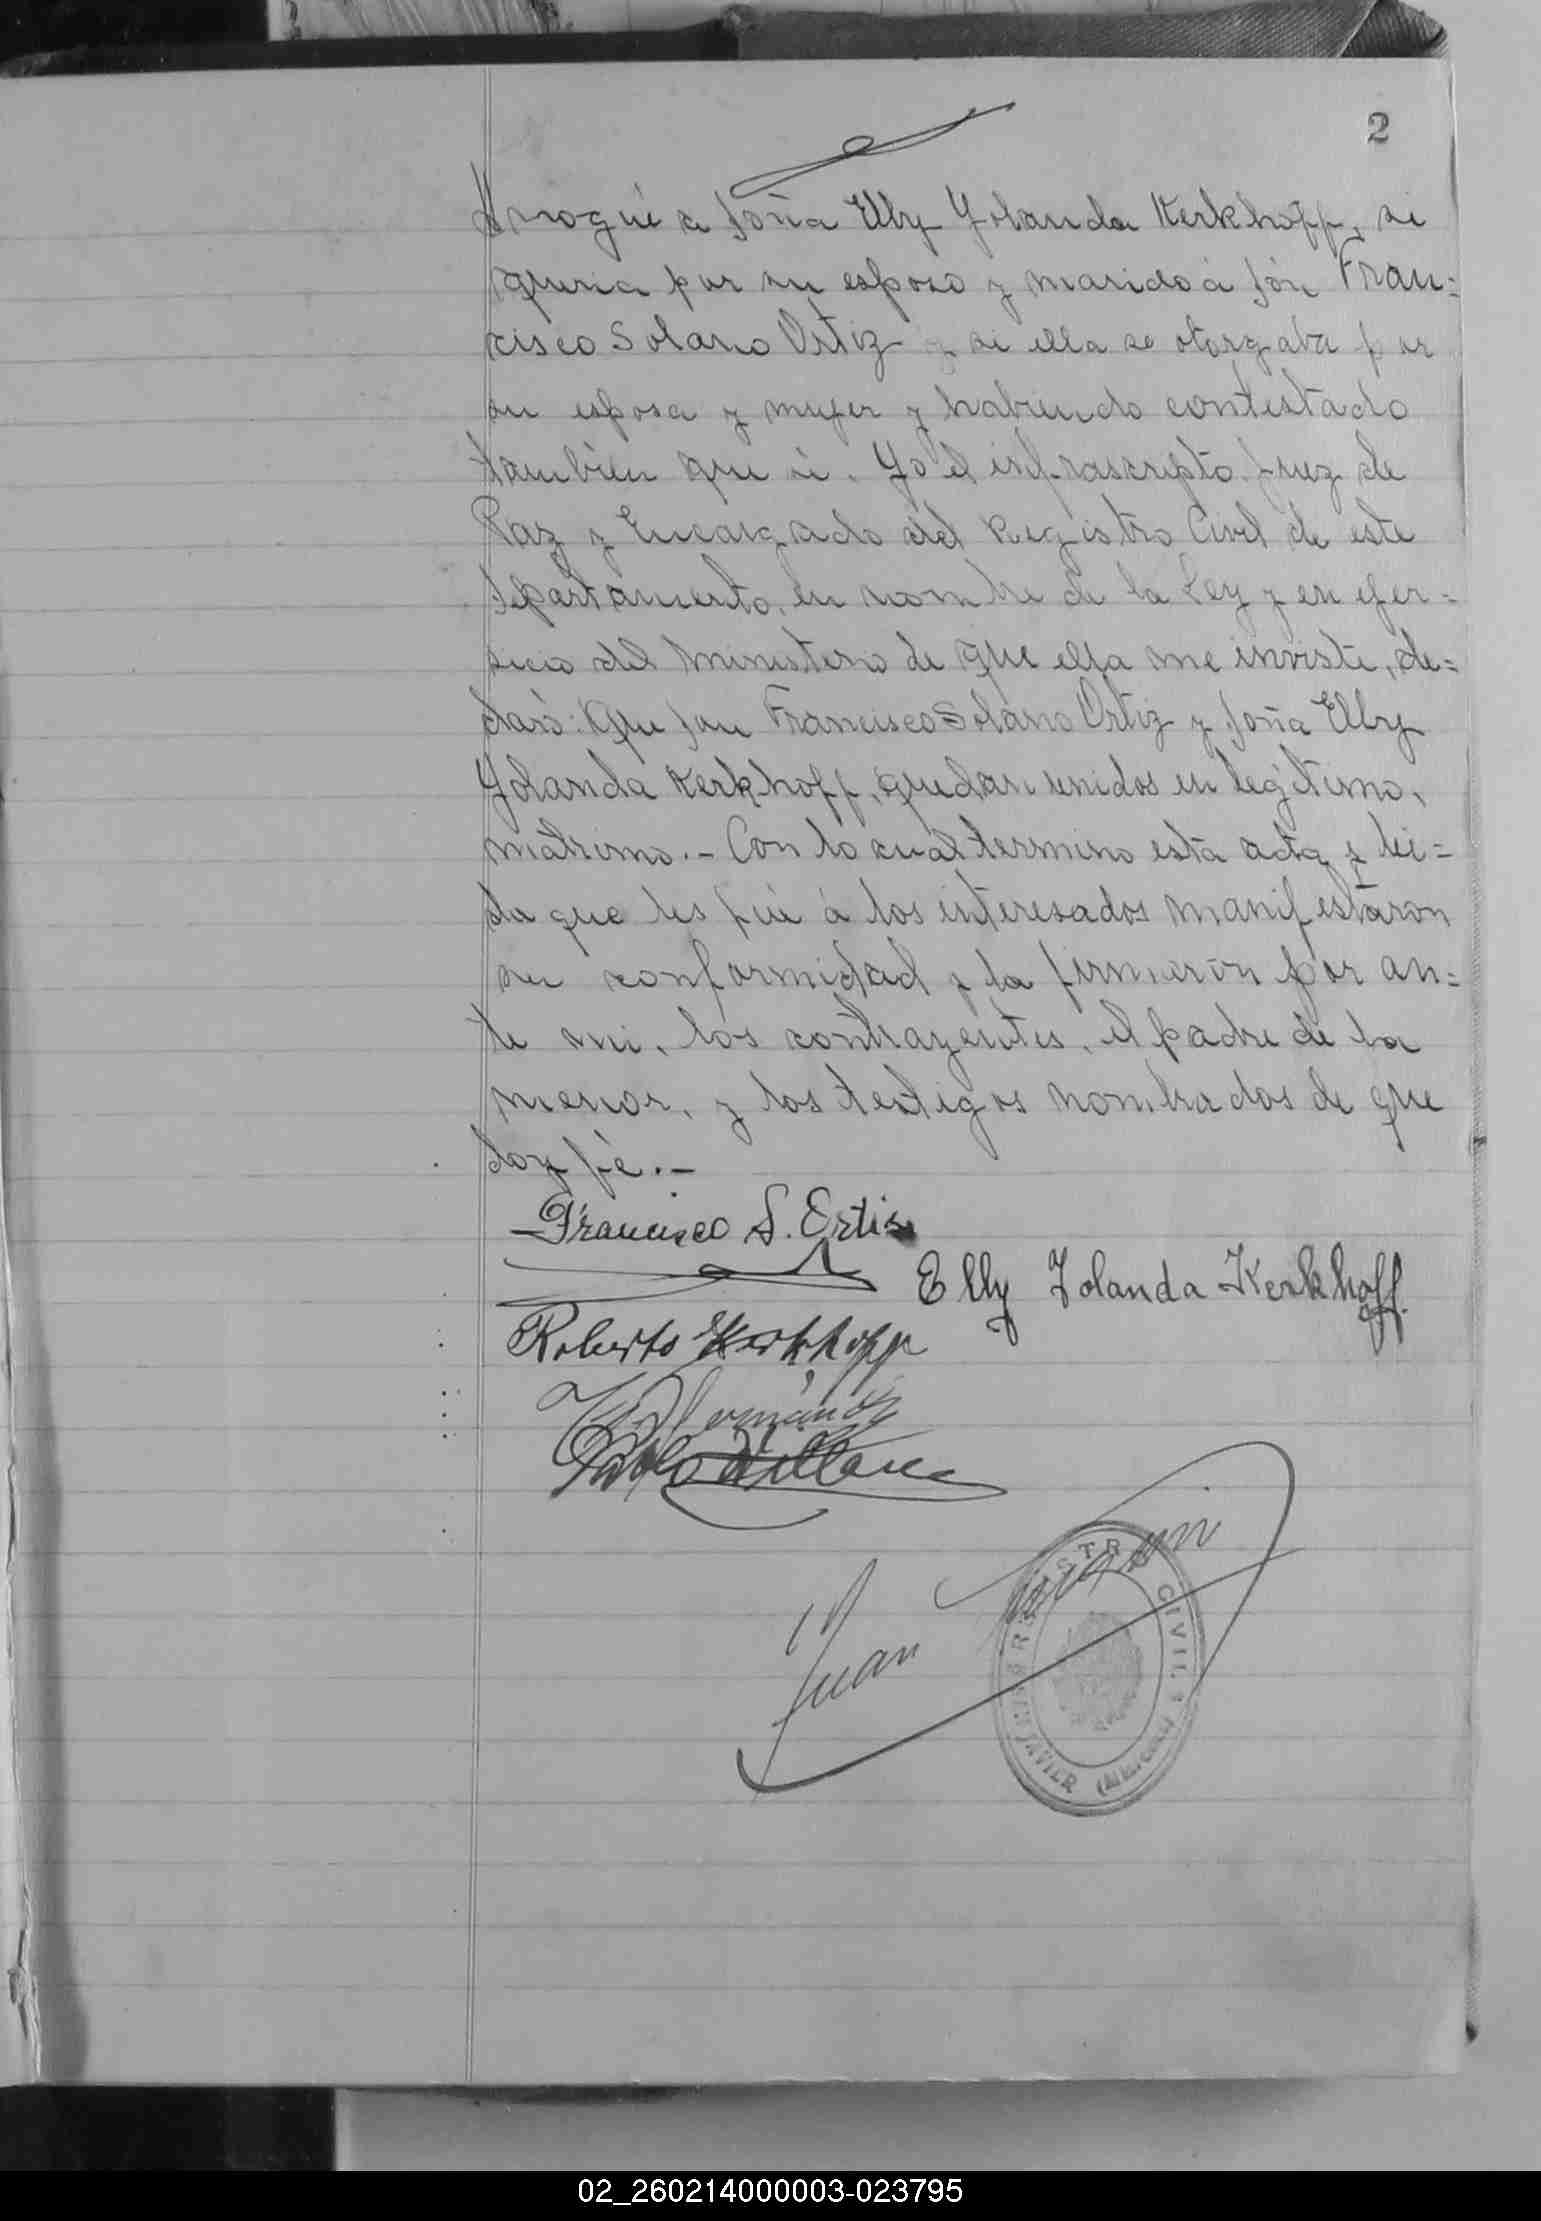 2
rrogué a Doña Elly Yolanda Kerkhoff, si
queria por su esposo y marido á Dón Fran=
cisco Solano Ortiz y si ella se otorgaba por
su esposa y mujer y habiendo contestado
también que si. Yo el infrascripto Juez de
Paz y Encargado del Registro Civil de este
Departamento, en nombre de la Ley y en ejer=
sicio del ministerio de que ella me inviste, de=
claró: Que Don Francisco Solano Ortiz y Doña Elly
Yolanda Kerkhoff, quedan unidos en legitimo,
matrimo.- Con lo cual termino esta acta y lei=
da que les fué á los interesados manifestaron
su conformidad y la firmaron por an=
te mi, los contrayentes, el padre de la
menor, y los testigos nombrados de que
doy fé.-
Francisco S. Ortis
Elly Yolanda Kerkhoff.
Roberto Kerkhoff
Fernández
Pablo Villanca
Juan
REGISTRO CIVIL
SAN JAVIER (Misiones)
02_260214000003-023795